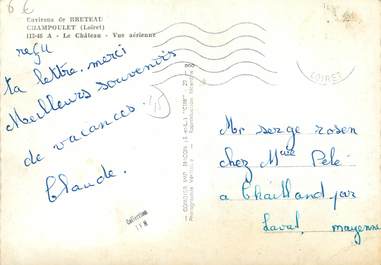 Environs de BRETEAU
CHAMPOULET (Loiret)
117-46 A - Le Château - Vue aérienne
reçu
ta lettre. merci
Meilleurs souvenirs
de vacances.
Claude.
Collection
LOIRET
Mr serge rosen
chez Mme Pelé
a Chailland par
Laval, mayenne